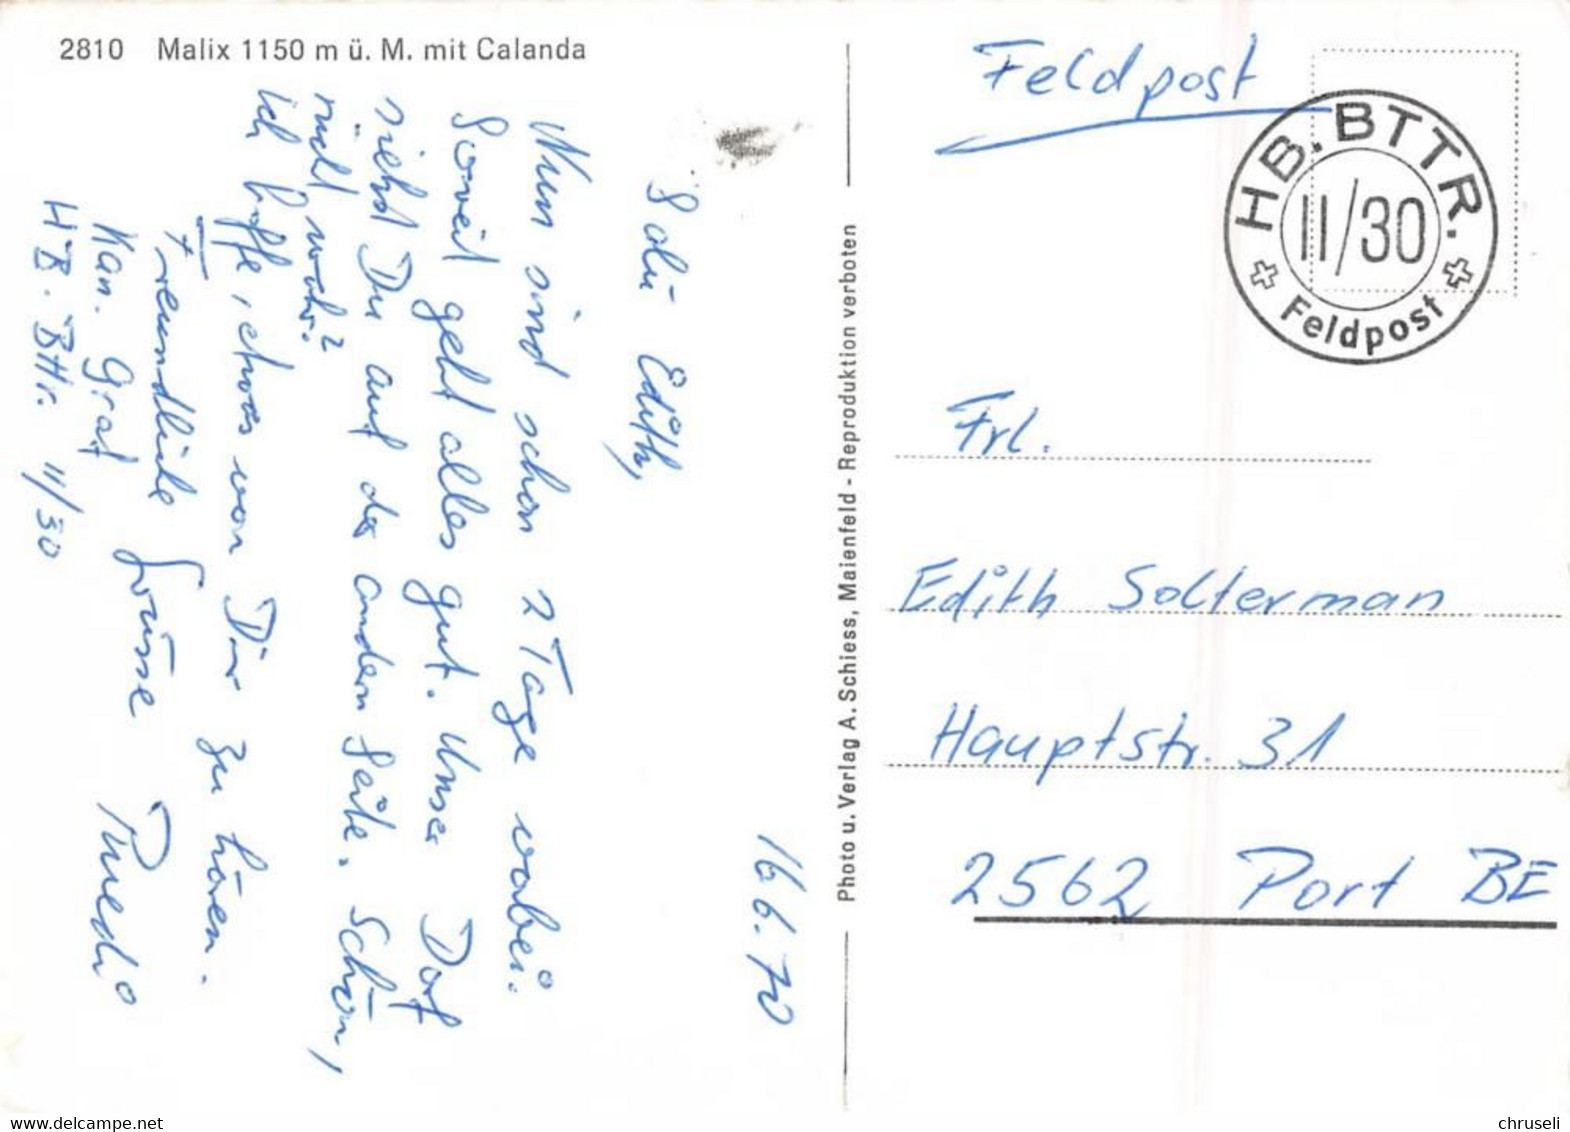 2810 Malix 1150 m ü. M. mit Calanda
16.6.70
Salü Edith,
Nun sind schon 2 Tage vorbei.
Soweit geht alles gut. Unser Dorf
siehst Du auf der andern Seite. Schön,
nicht wahr?
Ich hoffe, etwas von Dir zu hören.
Freundliche Grüsse Ruedi
Kan. Graf
HB. Bttr. 11/30
Photo u. Verlag A. Schiess, Maienfeld - Reproduktion verboten
Feldpost
HB. BTTR.
II/30
Feldpost
Frl.
Edith Solterman
Hauptstr. 31
2562 Port BE
chruseli